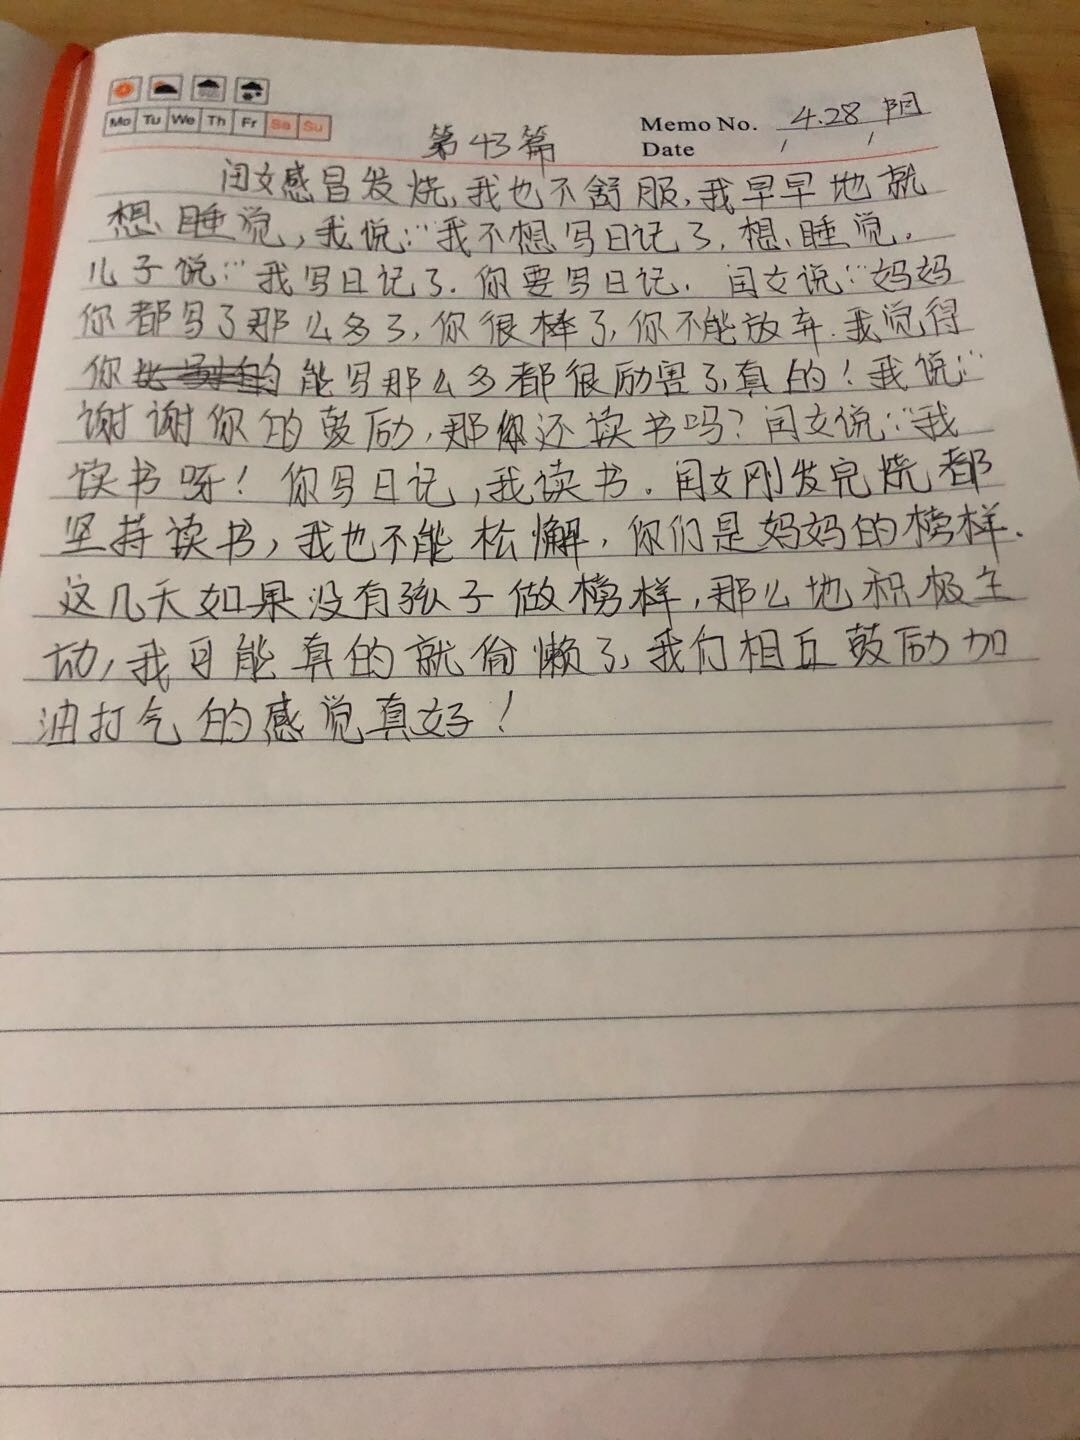 Mo Tu We Th Fr Sa Su
Memo No. 4.28 阴
Date
第43篇
闰女感冒发烧,我也不舒服,我早早地就
想睡觉,我说:"我不想写日记了,想睡觉.
儿子说:"我写日记了.你要写日记. 闰女说:"妈妈
你都写了那么多了,你很棒了,你不能放弃.我觉得
你能写那么多都很励害了,真的!我说:"
谢谢你的鼓励,那你还读书吗?闰女说:"我
读书呀!你写日记,我读书.闰女刚发完烧都
坚持读书,我也不能松懈,你们是妈妈的榜样.
这几天如果没有孩子做榜样,那么地积极主
动,我可能真的就偷懒了,我们相互鼓励加
油打气的感觉真好!